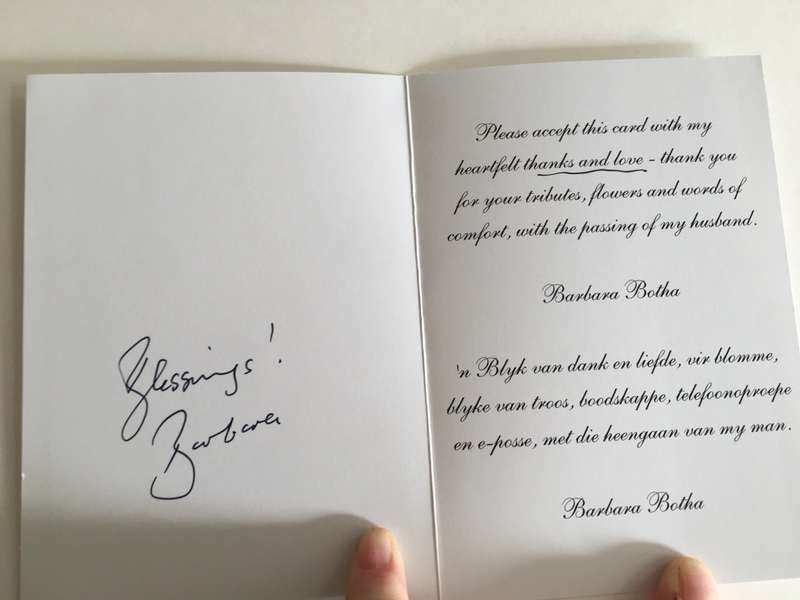 Blessings!
Barbara
Please accept this card with my
heartfelt thanks and love - thank you
for your tributes, flowers and words of
comfort, with the passing of my husband.
Barbara Botha
'n Blyk van dank en liefde, vir blomme,
blyke van troos, boodskappe, telefoonoproepe
en e-posse, met die heengaan van my man.
Barbara Botha